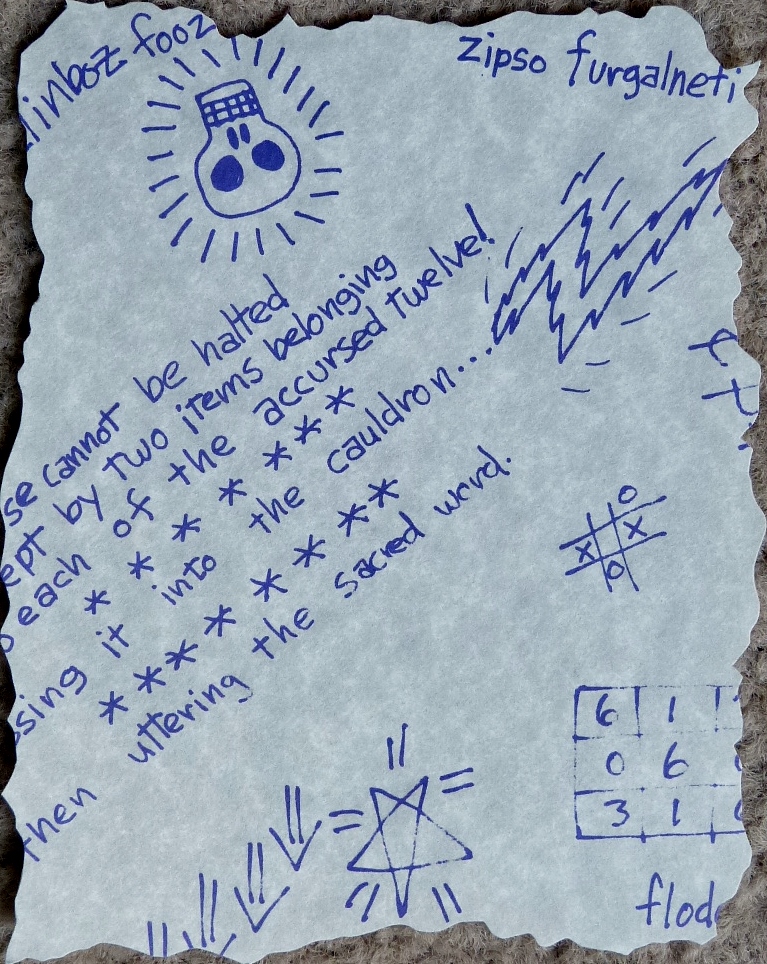 linboz fooz
zipso furgalneti
se cannot be halted
ept by two items belonging
o each of the accursed twelve!
* * * * * * *
ssing it into the cauldron...
* * * * * * * *
then uttering the sacred word.
O
X X
O
6 1
0 6
3 1
flod